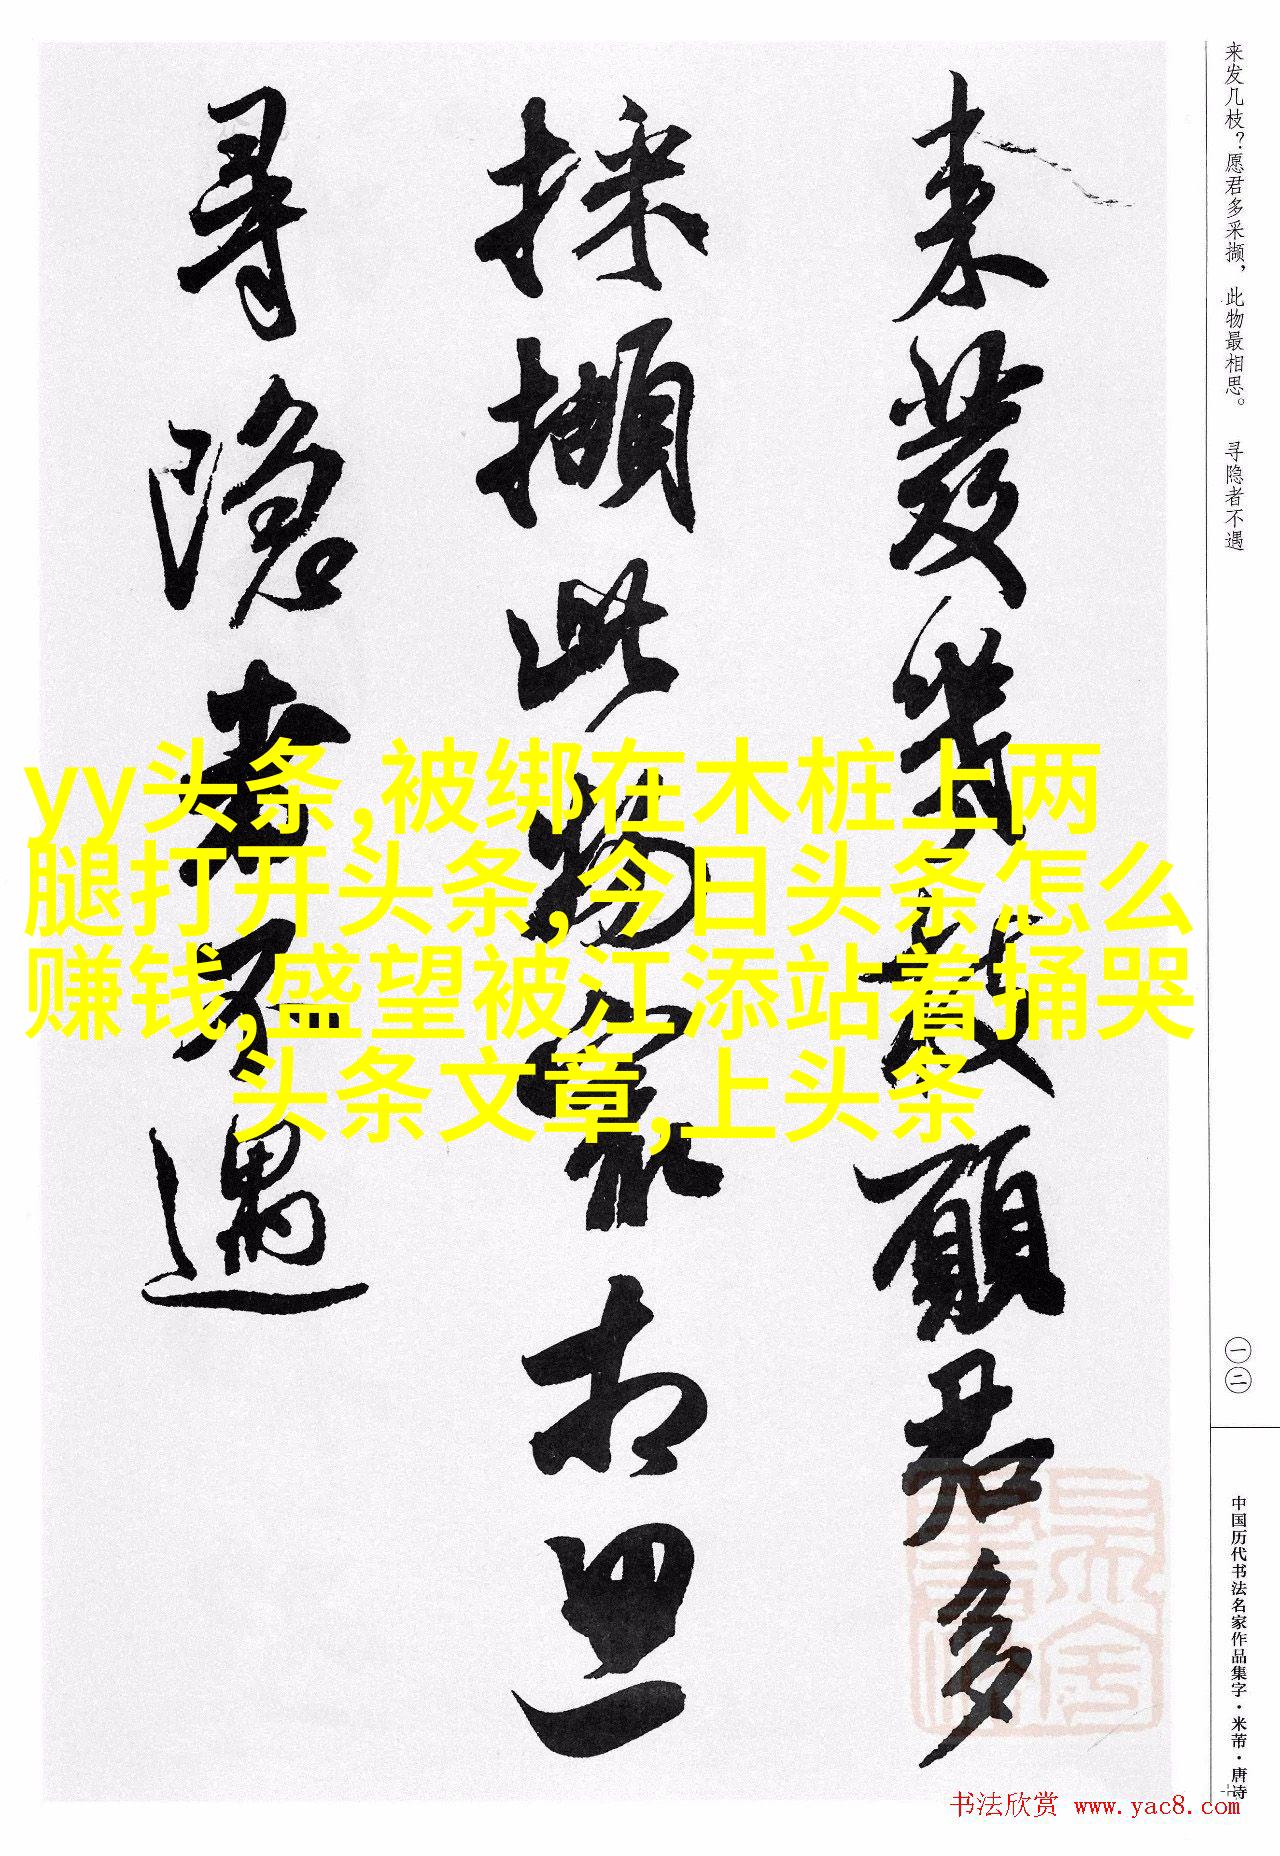 来发几枝？愿君多采撷，此物最相思。 寻隐者不遇
來發幾枝願君多
採撷此物最相思
尋隱者不遇
yy头条,被绑在木桩上两
腿打开头条,今日头条怎么
赚钱,盛望被江添站着捅哭
头条文章,上头条
一二
中国历代书法名家作品集字·米芾·唐诗
书法欣赏 www.yac8.com